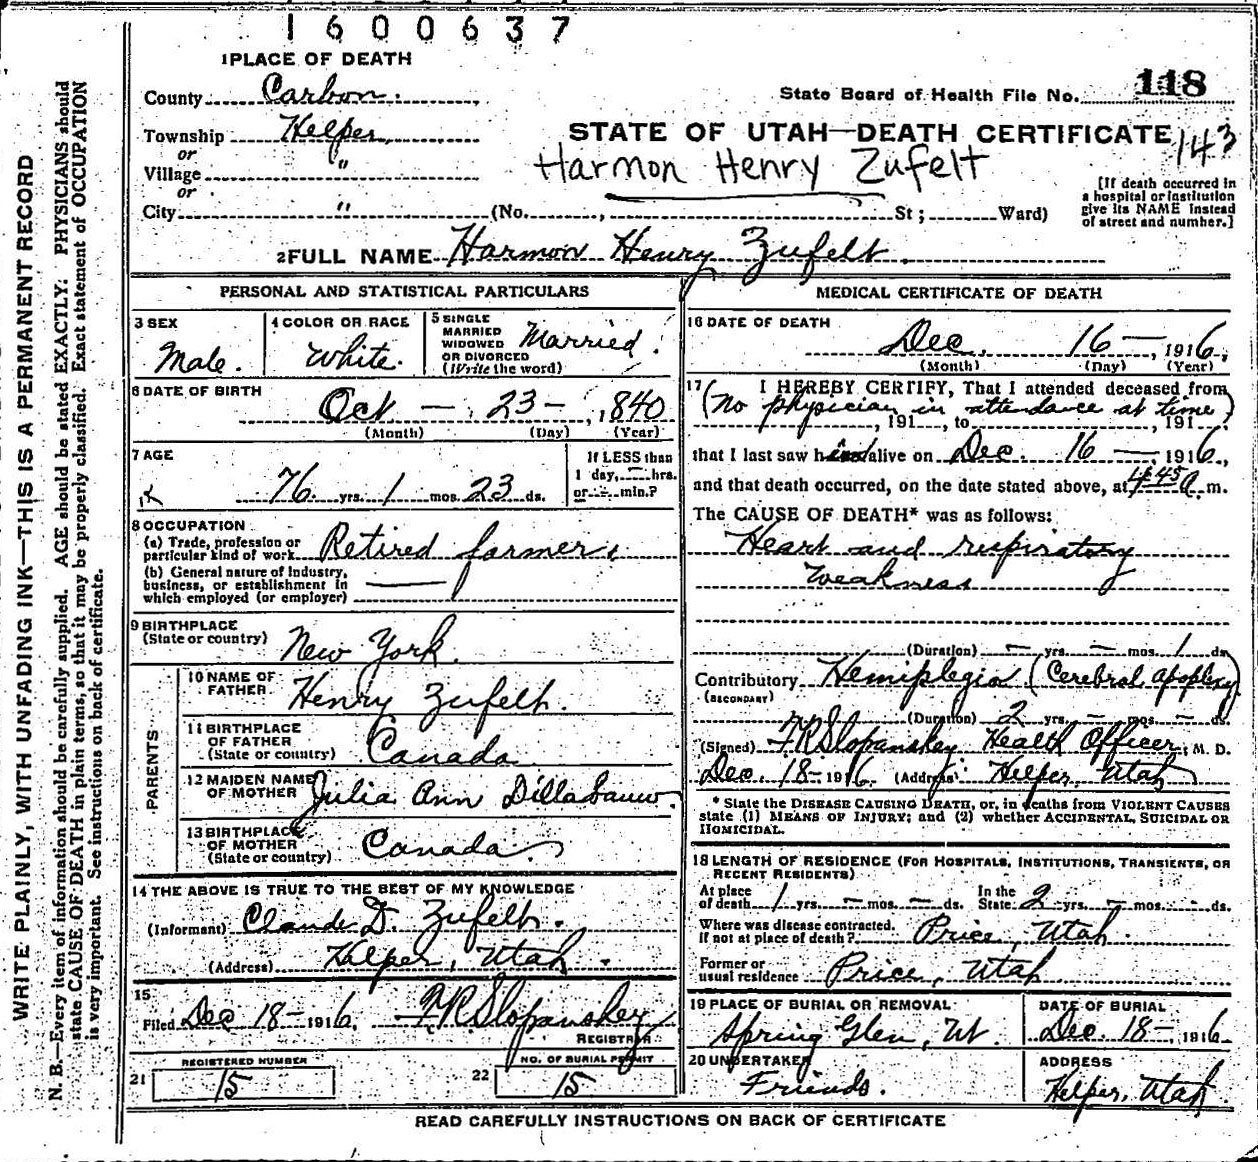 1600637
1 PLACE OF DEATH
County Carbon.
State Board of Health File No. 118
Township Helper
or
STATE OF UTAH—DEATH CERTIFICATE 143
Village "
Harmon Henry Zufelt
or
City " (No. , St; Ward)
[If death occurred in
a hospital or institution
give its NAME instead
of street and number.]
2 FULL NAME Harmon Henry Zufelt.
PERSONAL AND STATISTICAL PARTICULARS
3 SEX
Male.
4 COLOR OR RACE
White.
5 SINGLE
MARRIED
WIDOWED
OR DIVORCED
(Write the word)
Married.
6 DATE OF BIRTH
Oct — 23 — , 1840
(Month) (Day) (Year)
7 AGE
76 yrs. 1 mos. 23 ds.
If LESS than
1 day, — hrs.
or — min.?
8 OCCUPATION
(a) Trade, profession or
particular kind of work Retired farmer
(b) General nature of Industry,
business, or establishment in
which employed (or employer)
9 BIRTHPLACE
(State or country) New York.
PARENTS
10 NAME OF
FATHER Henry Zufelt.
11 BIRTHPLACE
OF FATHER
(State or country) Canada
12 MAIDEN NAME
OF MOTHER Julia Ann Dillabauw.
13 BIRTHPLACE
OF MOTHER
(State or country) Canada
14 THE ABOVE IS TRUE TO THE BEST OF MY KNOWLEDGE
(Informant) Claude D. Zufelt.
(Address) Helper, Utah.
15
Filed Dec 18— 1916. F.R. Slopanskey
REGISTRAR
REGISTERED NUMBER
21 15
NO. OF BURIAL PERMIT
22 15
MEDICAL CERTIFICATE OF DEATH
16 DATE OF DEATH
Dec. 16 — , 1916,
(Month) (Day) (Year)
17 I HEREBY CERTIFY, That I attended deceased from
(No physician in attendance at time)
, 191 , to , 191
that I last saw him alive on Dec. 16 — , 1916,
and that death occurred, on the date stated above, at 4:45 A. m.
The CAUSE OF DEATH* was as follows:
Heart and respiratory
weakness
(Duration) — yrs. — mos. 1 ds.
Contributory Hemiplegia (Cerebral apoplexy)
(SECONDARY)
(Duration) 2 yrs. — mos. — ds.
(Signed) F.R. Slopanskey Health Officer, M. D.
Dec. 18— 1916 (Address) Helper, Utah
* State the DISEASE CAUSING DEATH, or, in deaths from VIOLENT CAUSES
state (1) MEANS OF INJURY; and (2) whether ACCIDENTAL, SUICIDAL OR
HOMICIDAL.
18 LENGTH OF RESIDENCE (FOR HOSPITALS, INSTITUTIONS, TRANSIENTS, OR
RECENT RESIDENTS)
At place
of death 1 yrs. — mos. — ds.
In the
State 2 yrs. — mos. — ds.
Where was disease contracted.
If not at place of death? Price, Utah.
Former or
usual residence Price, Utah
19 PLACE OF BURIAL OR REMOVAL
Spring Glen, Ut.
DATE OF BURIAL
Dec. 18— , 1916
20 UNDERTAKER
Friends.
ADDRESS
Helper, Utah
READ CAREFULLY INSTRUCTIONS ON BACK OF CERTIFICATE
WRITE PLAINLY, WITH UNFADING INK—THIS IS A PERMANENT RECORD
N. B.—Every item of information should be carefully supplied. AGE should be stated EXACTLY. PHYSICIANS should
state CAUSE OF DEATH in plain terms, so that it may be properly classified. Exact statement of OCCUPATION
is very important. See instructions on back of certificate.